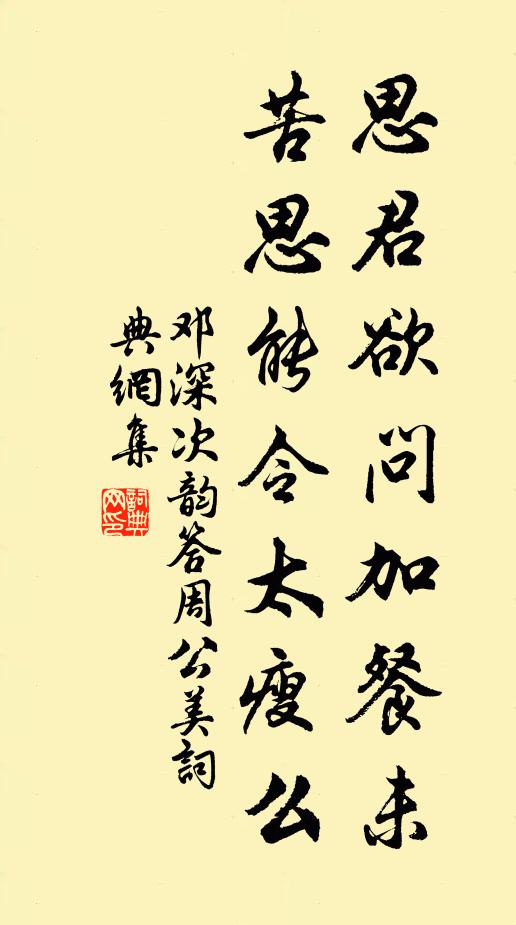 思君欲问加餐未
苦思能令太瘦么
邓深次韵答周公美詞
典網集
詞典网印